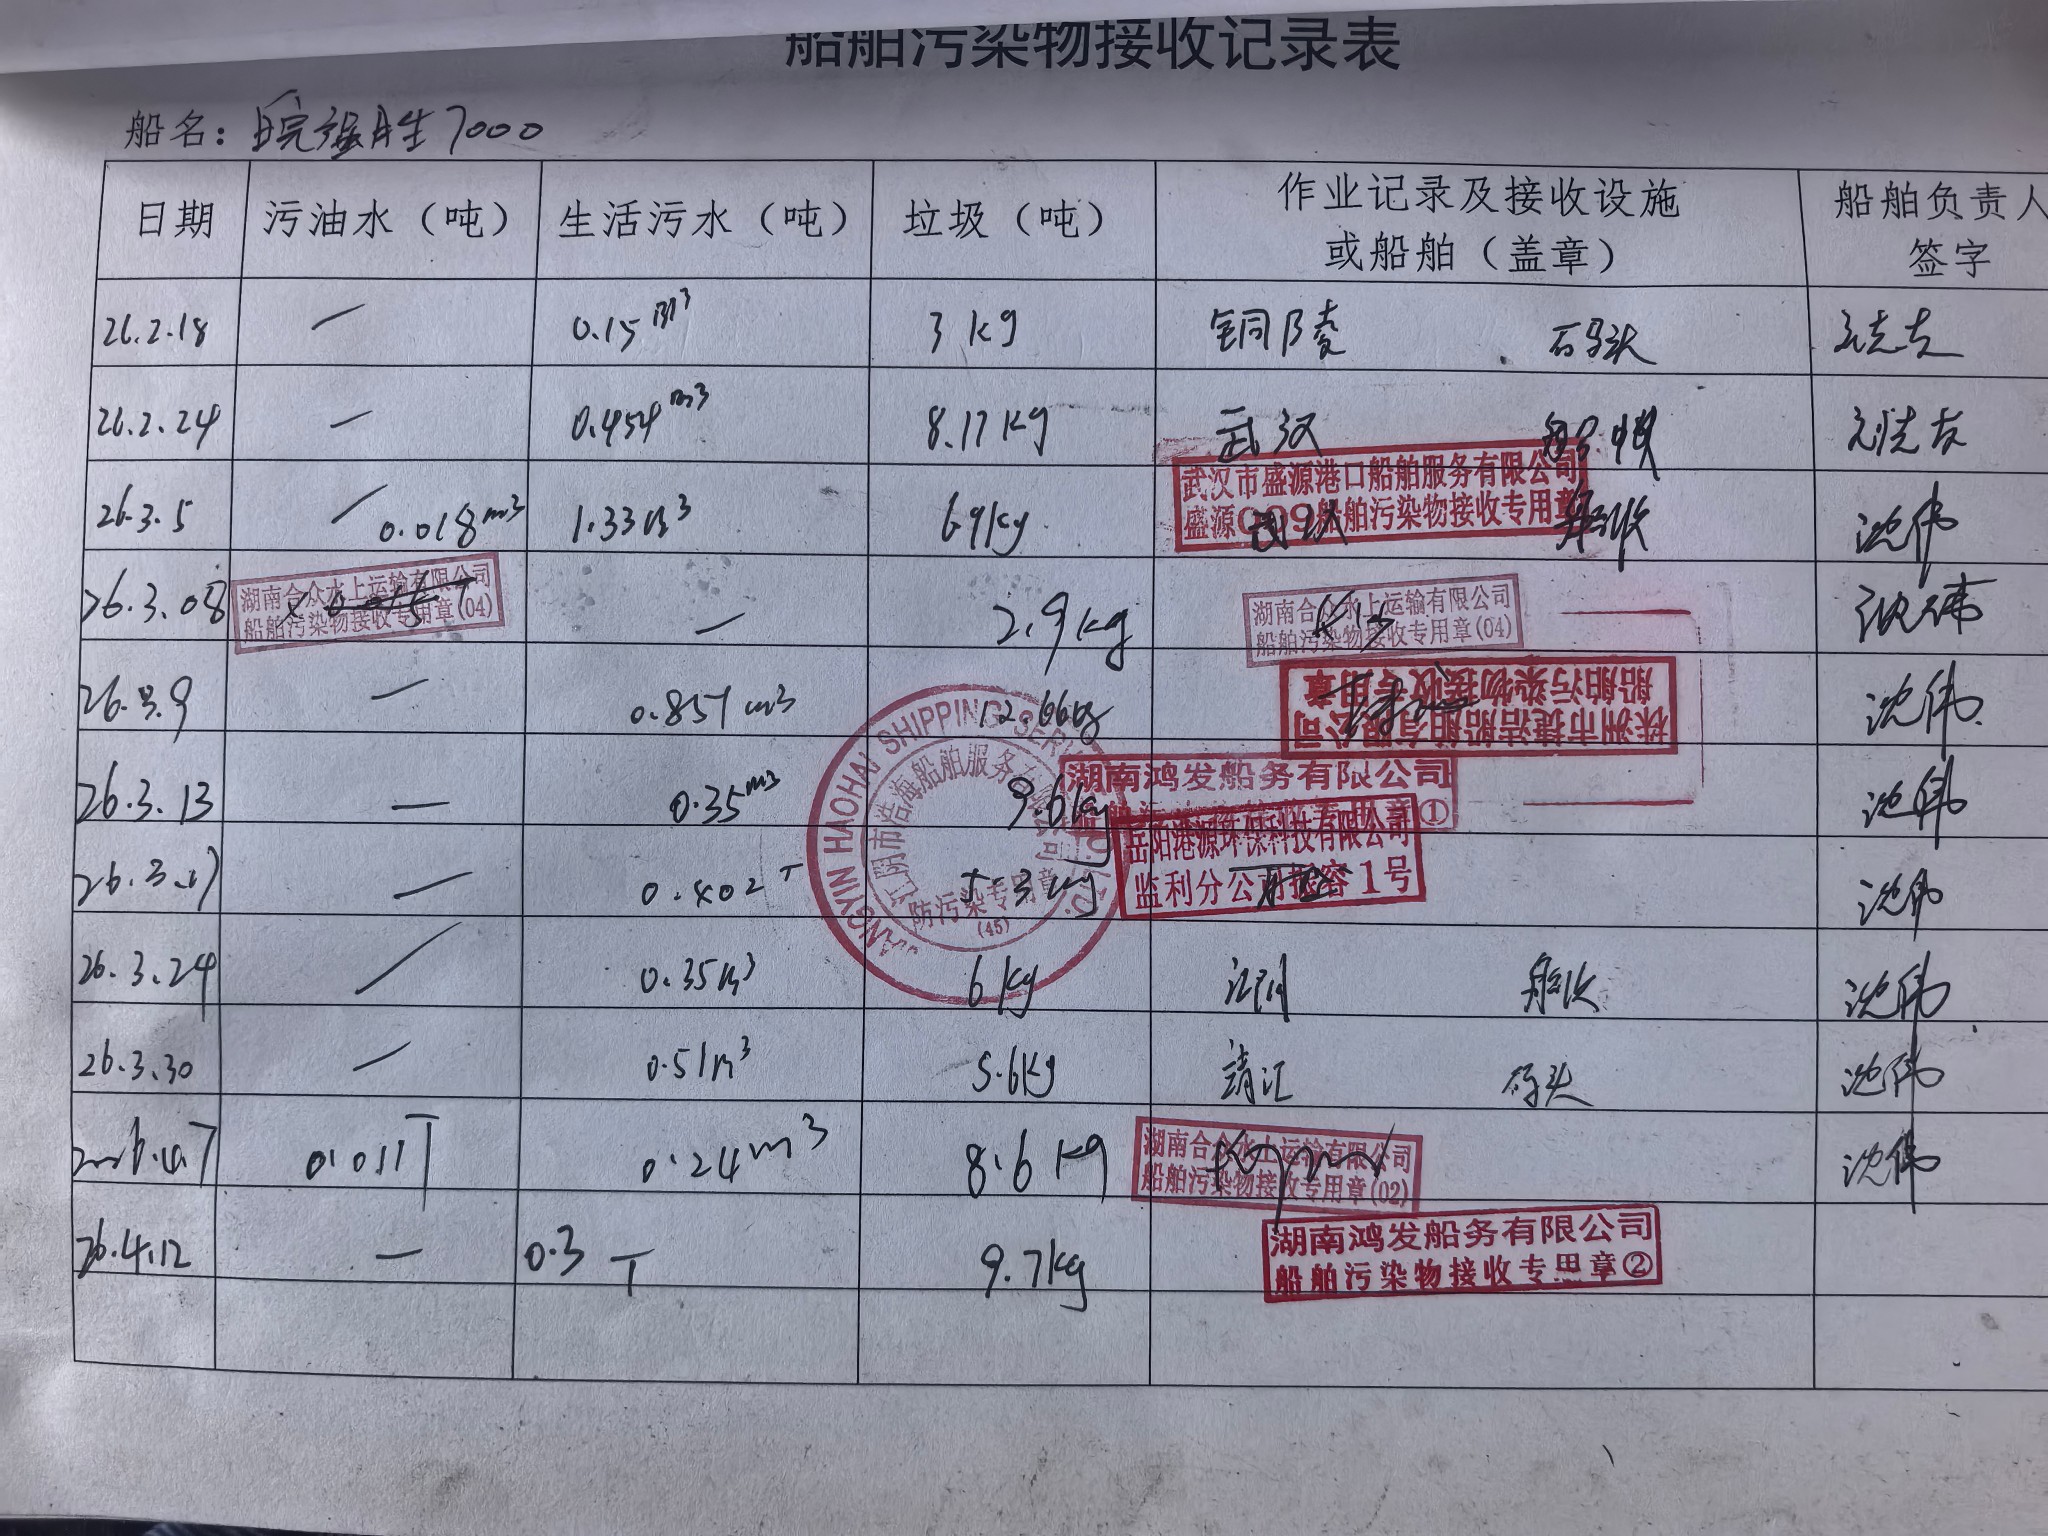 船舶污染物接收记录表
船名：皖强胜7000
日期 污油水（吨） 生活污水（吨） 垃圾（吨） 作业记录及接收设施或船舶（盖章） 船舶负责人签字
26.2.18 — 0.15m³ 3kg 铜陵 码头
26.2.24 — 0.454m³ 8.17kg 武汉 船收
武汉市盛源港口船舶服务有限公司
盛源009船舶污染物接收专用章
26.3.5 — 0.018m³ 1.33m³ 69kg 武汉 船收 沈伟
26.3.08 — 2.9kg 沈伟
湖南合众水上运输有限公司
船舶污染物接收专用章(04)
湖南合众水上运输有限公司
船舶污染物接收专用章(04)
26.3.9 — 0.857m³ 12.66kg 沈伟
株洲市捷洁船舶有限公司
船舶污染物接收专用章
26.3.13 — 0.35m³ 9.6kg 沈伟
湖南鸿发船务有限公司
26.3.17 — 0.402T 5.3kg 沈伟
岳阳港源环保科技有限公司
监利分公司 1号
JIANGYIN HAOHAI SHIPPING SERV
江阴市浩海船舶服务有限公司
防污染专用章
(45)
26.3.24 — 0.35m³ 6kg 江阴 船收 沈伟
26.3.30 — 0.51m³ 5.6kg 靖江 码头 沈伟
2026.4.7 0.011T 0.24m³ 8.6kg 沈伟
湖南合众水上运输有限公司
船舶污染物接收专用章(02)
26.4.12 — 0.3T 9.7kg
湖南鸿发船务有限公司
船舶污染物接收专用章②